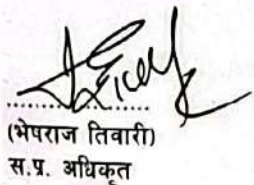 (भेषराज तिवारी)
स.प्र. अधिकृत